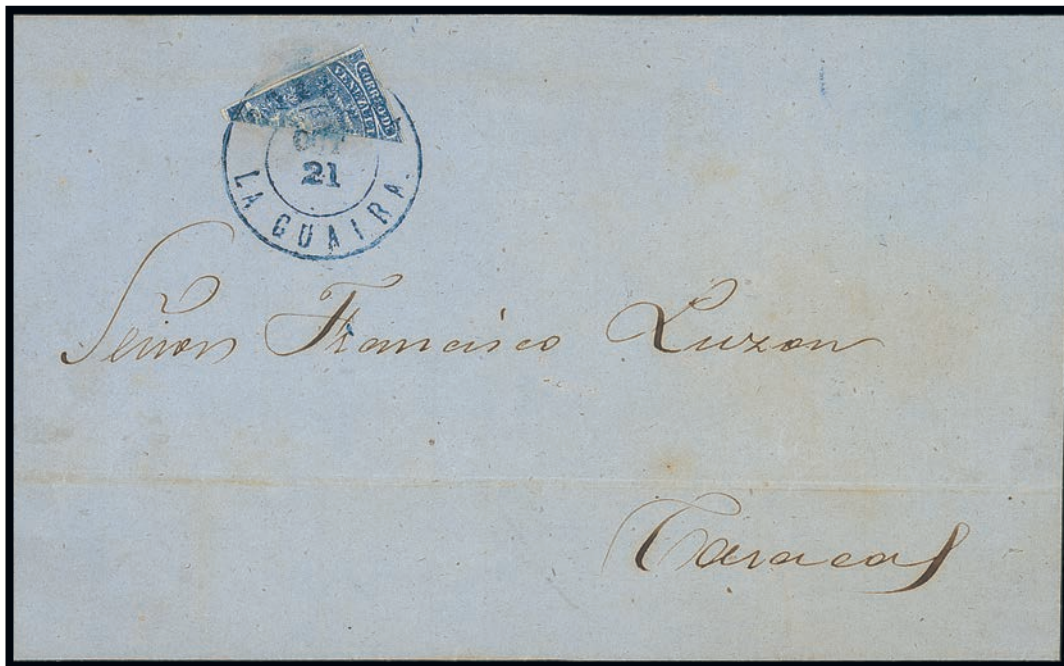 CORREO DE
VENEZUEL
OCT
21
LA GUAIRA.
Señor Francisco Luzon
Caracas